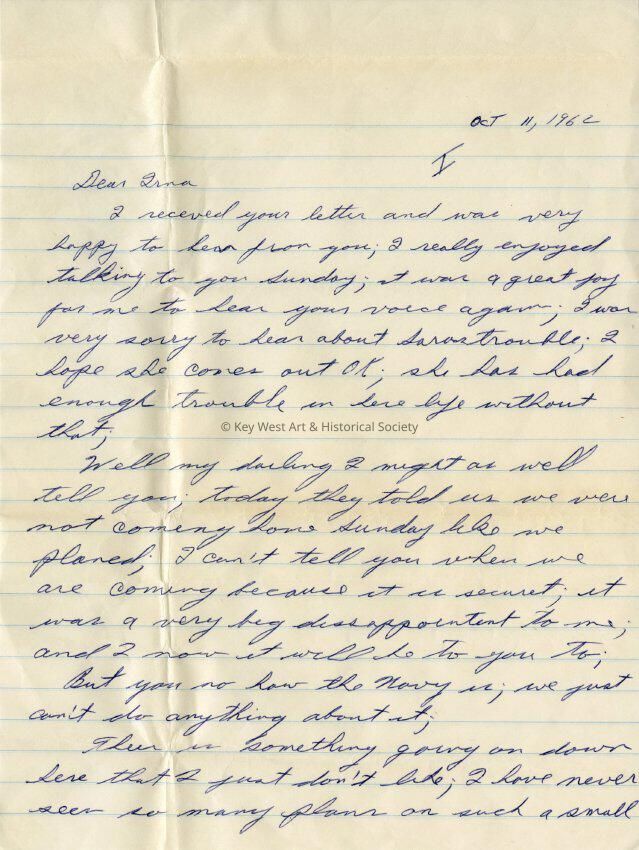 OCT 11, 1962
I
Dear Irma
I receved your letter and was very
happy to hear from you; I really enjoyed
talking to you Sunday; it was a great joy
for me to hear your voice again; I was
very sorry to hear about Saras trouble; I
hope she comes out OK; she has had
enough trouble in here life without
that;
© Key West Art & Historical Society
Well my darling I might as well
tell you; today they told us we were
not coming home Sunday like we
planed; I can't tell you when we
are coming because it is securet; it
was a very big dissappointent to me;
and I now it will be to you to;
But you no how the Navy is; we just
can't do anything about it;
Ther is something going on down
here that I just don't like; I have never
seen so many plans on such a small